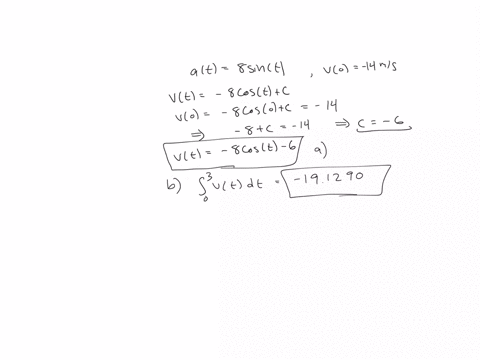 a(t) = 8sin(t) , v(0) = -14 m/s
v(t) = - 8cos(t) + C
v(0) = - 8cos(0) + C = - 14
⇒ - 8 + C = - 14 ⇒ C = - 6
v(t) = - 8cos(t) - 6 a)
b) ∫₀³ v(t) dt = -19.1290